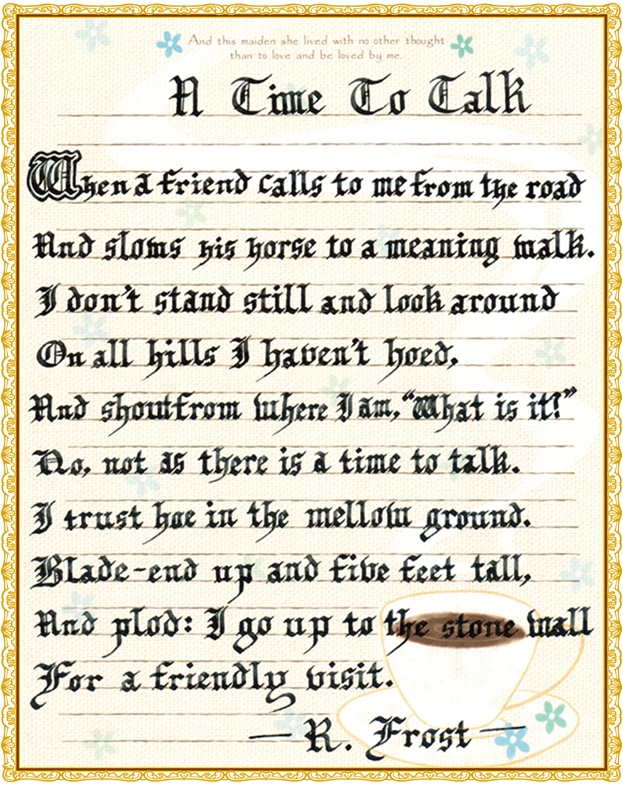 And this maiden she lived with no other thought
than to love and be loved by me.
A Time To Talk
When a friend calls to me from the road
And slows his horse to a meaning walk.
I don't stand still and look around
On all hills I haven't hoed,
And shout from where I am, "What is it?"
No, not as there is a time to talk.
I trust hoe in the mellow ground.
Blade-end up and five feet tall,
And plod: I go up to the stone wall
For a friendly visit.
— R. Frost —